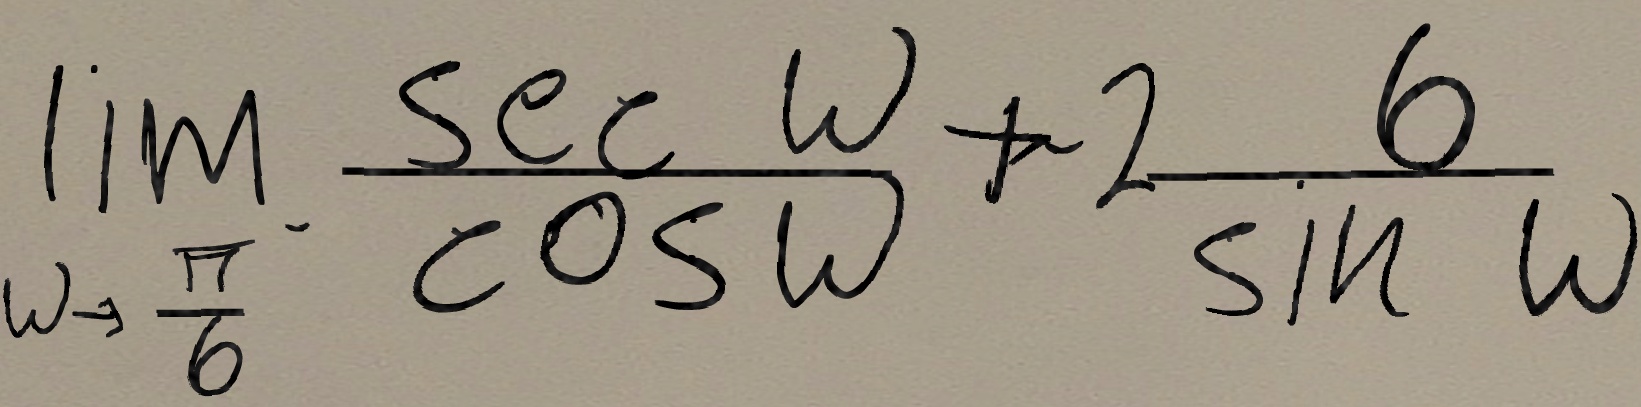 \lim_{w \to \frac{\pi}{6}^{-}} \frac{\sec w}{\cos w} + 2 \frac{6}{\sin w}